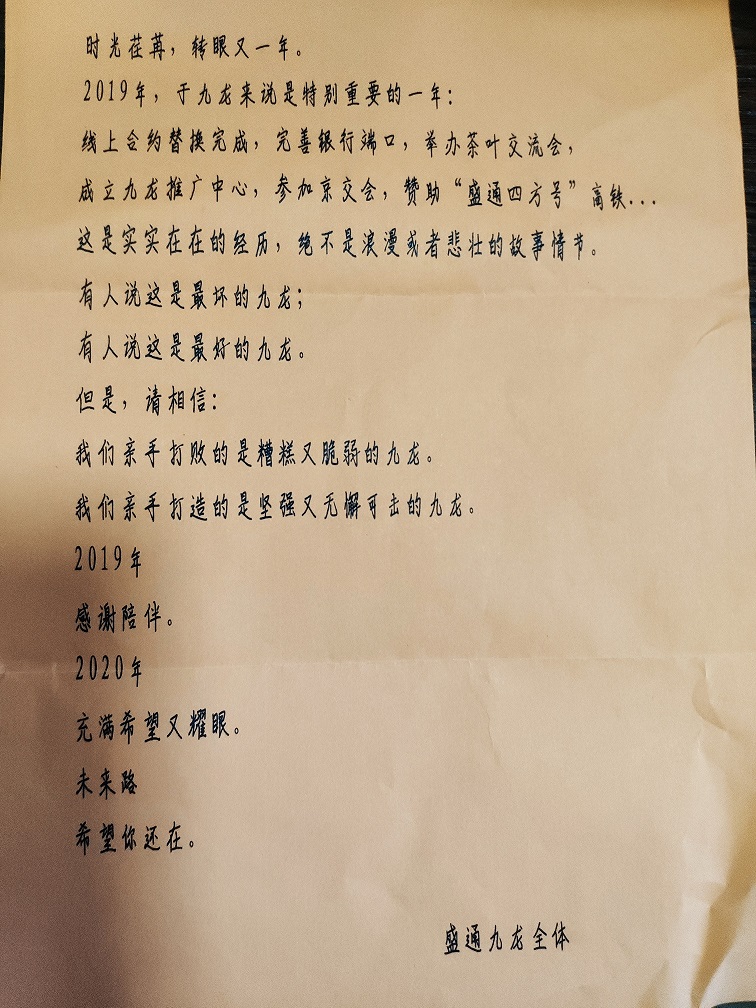 时光荏苒，转眼又一年。
2019年，于九龙来说是特别重要的一年：
线上合约替换完成，完善银行端口，举办茶叶交流会，
成立九龙推广中心，参加京交会，赞助“盛通四方号”高铁...
这是实实在在的经历，绝不是浪漫或者悲壮的故事情节。
有人说这是最坏的九龙；
有人说这是最好的九龙。
但是，请相信：
我们亲手打败的是糟糕又脆弱的九龙。
我们亲手打造的是坚强又无懈可击的九龙。
2019年
感谢陪伴。
2020年
充满希望又耀眼。
未来路
希望你还在。
盛通九龙全体